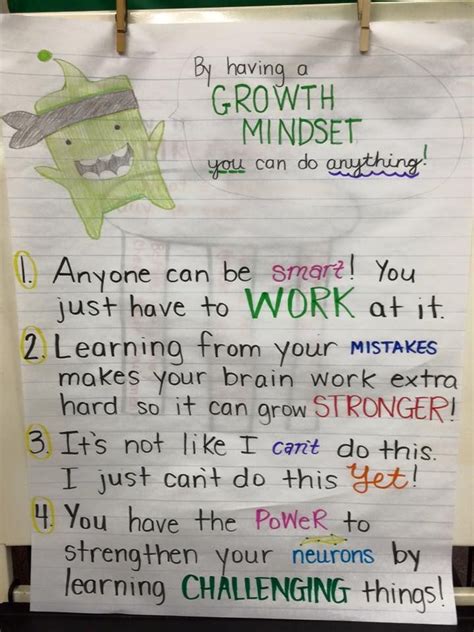 By having a
GROWTH
MINDSET
you can do anything!
1. Anyone can be smart! You
just have to WORK at it.
2. Learning from your MISTAKES
makes your brain work extra
hard so it can grow STRONGER!
3. It's not like I can't do this.
I just can't do this Yet!
4. You have the PoWeR to
strengthen your neurons by
learning CHALLENGING things!